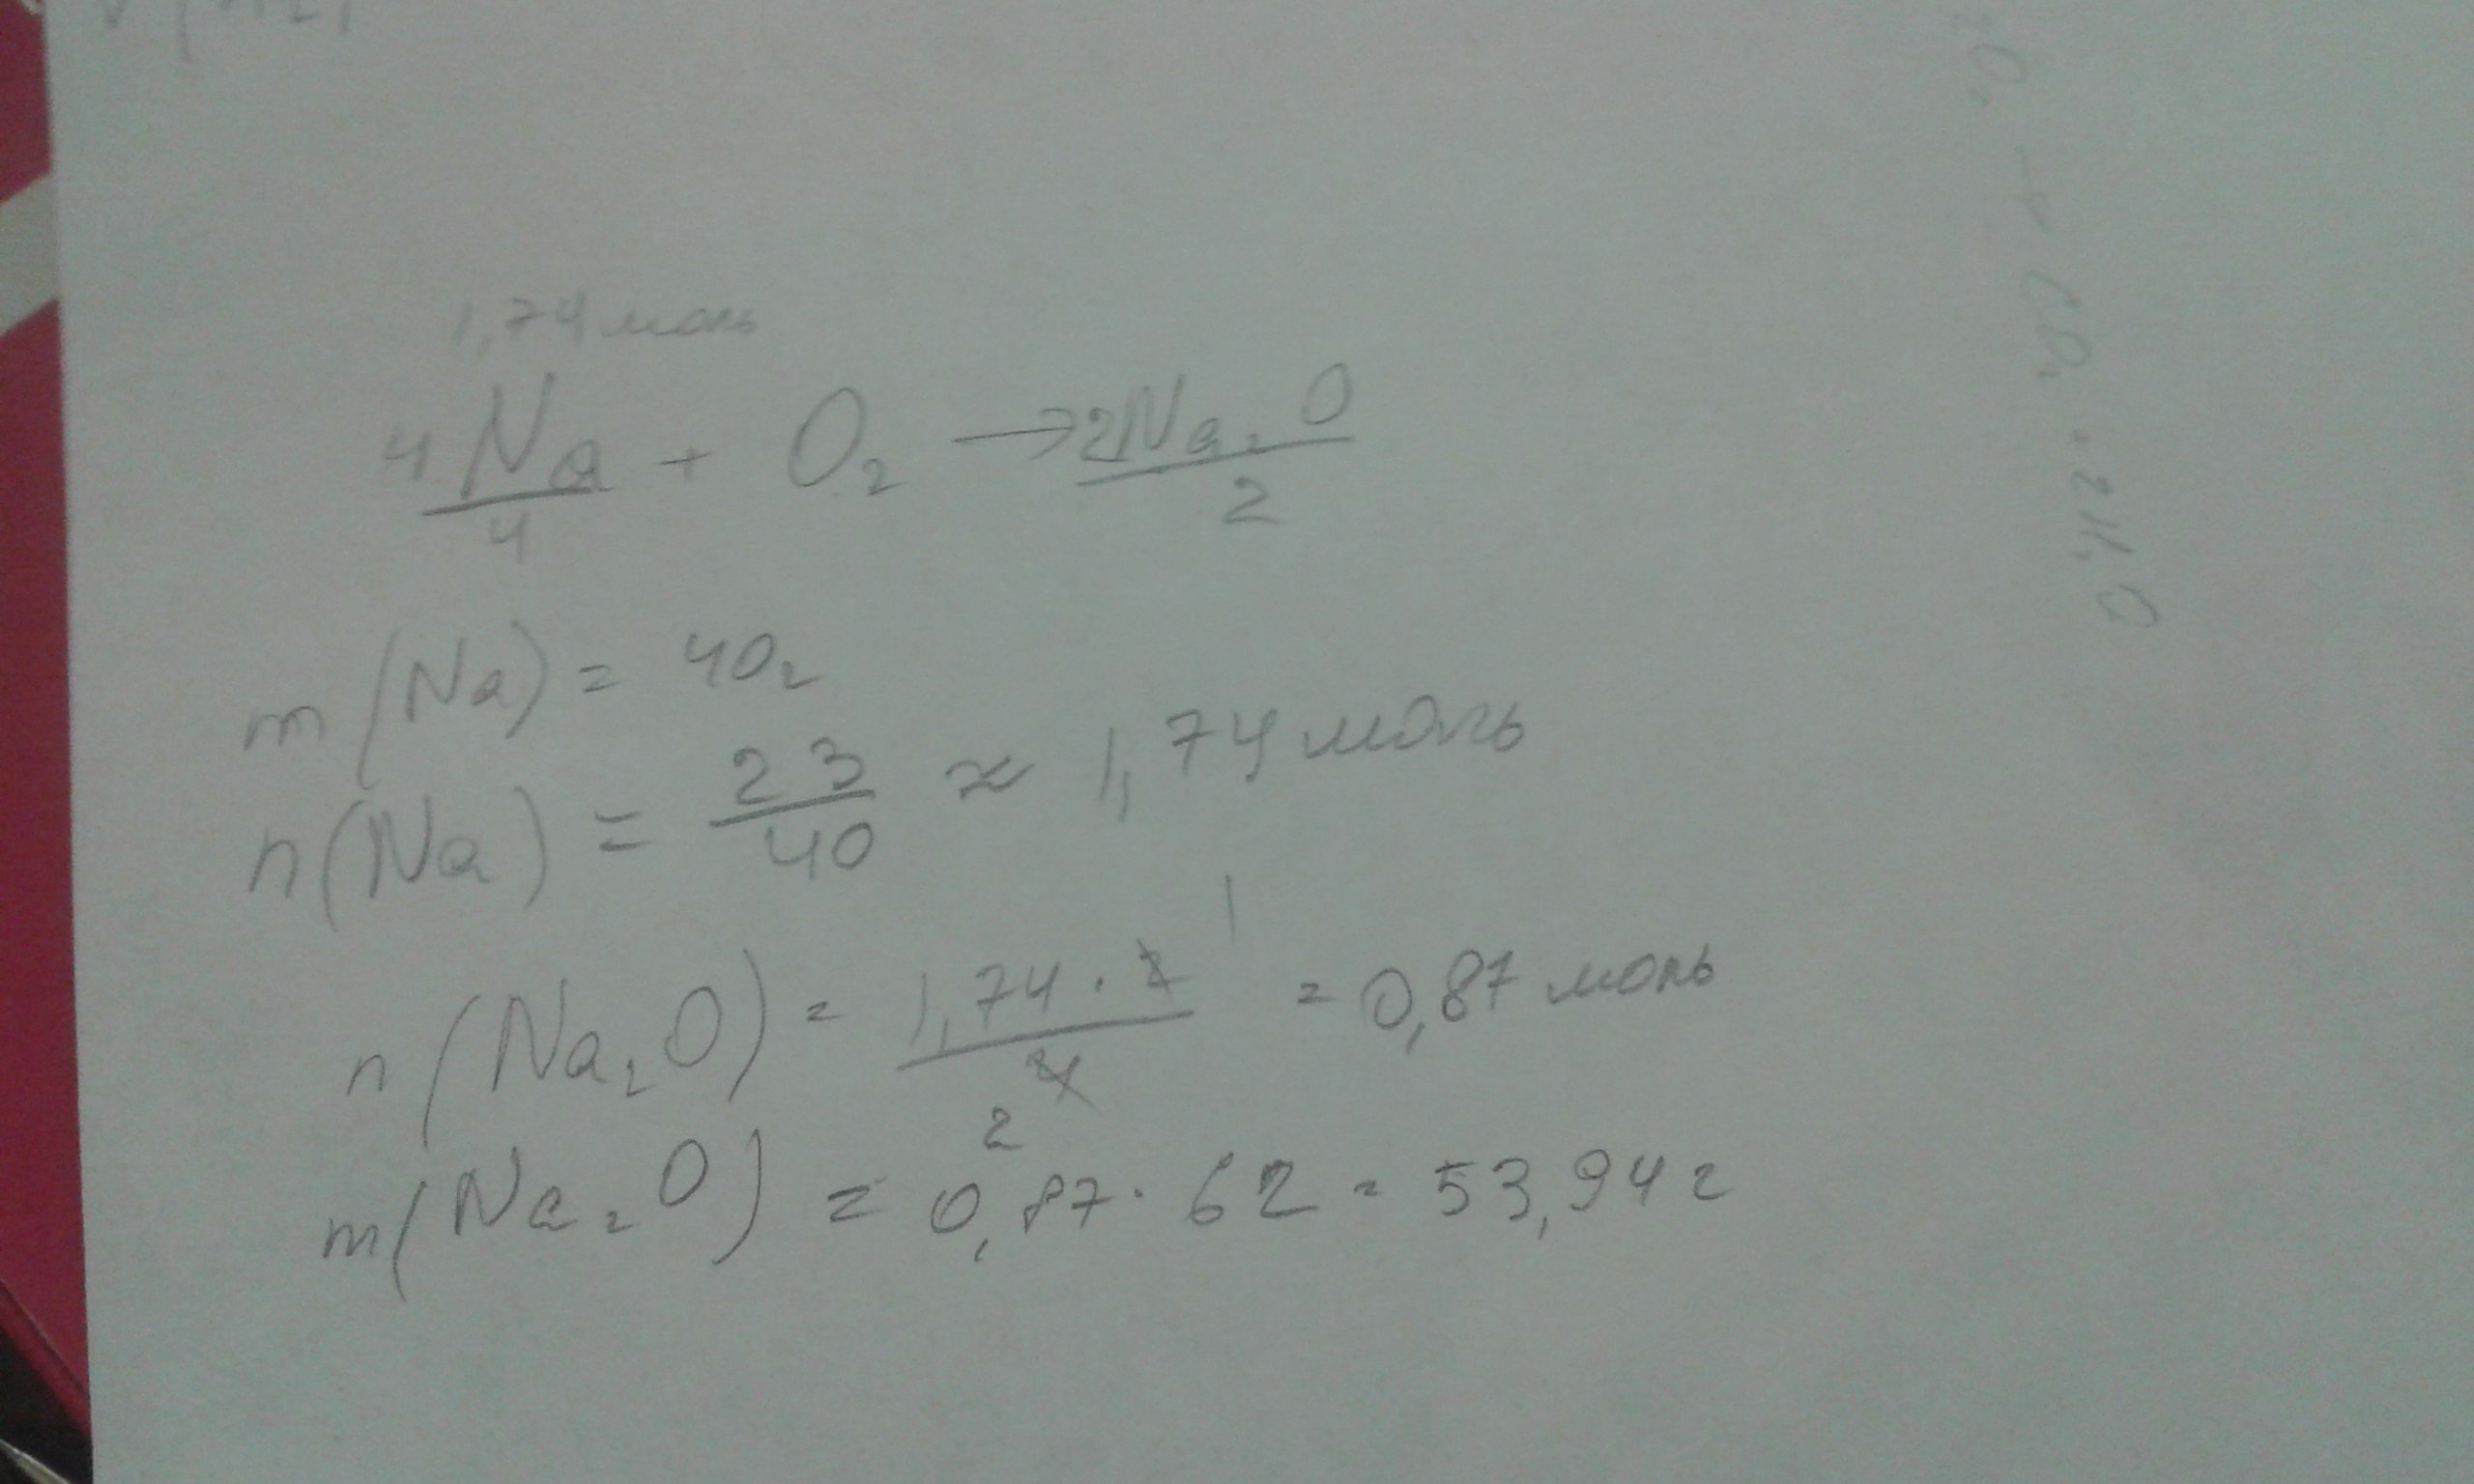 1,74 моль
4Na + O₂ → 2Na₂O
4 2
m(Na) = 40г
n(Na) = 23/40 ≈ 1,74 моль
1
n(Na₂O) = 1,74 · 2/4 = 0,87 моль
2
m(Na₂O) = 0,87 · 62 = 53,94 г